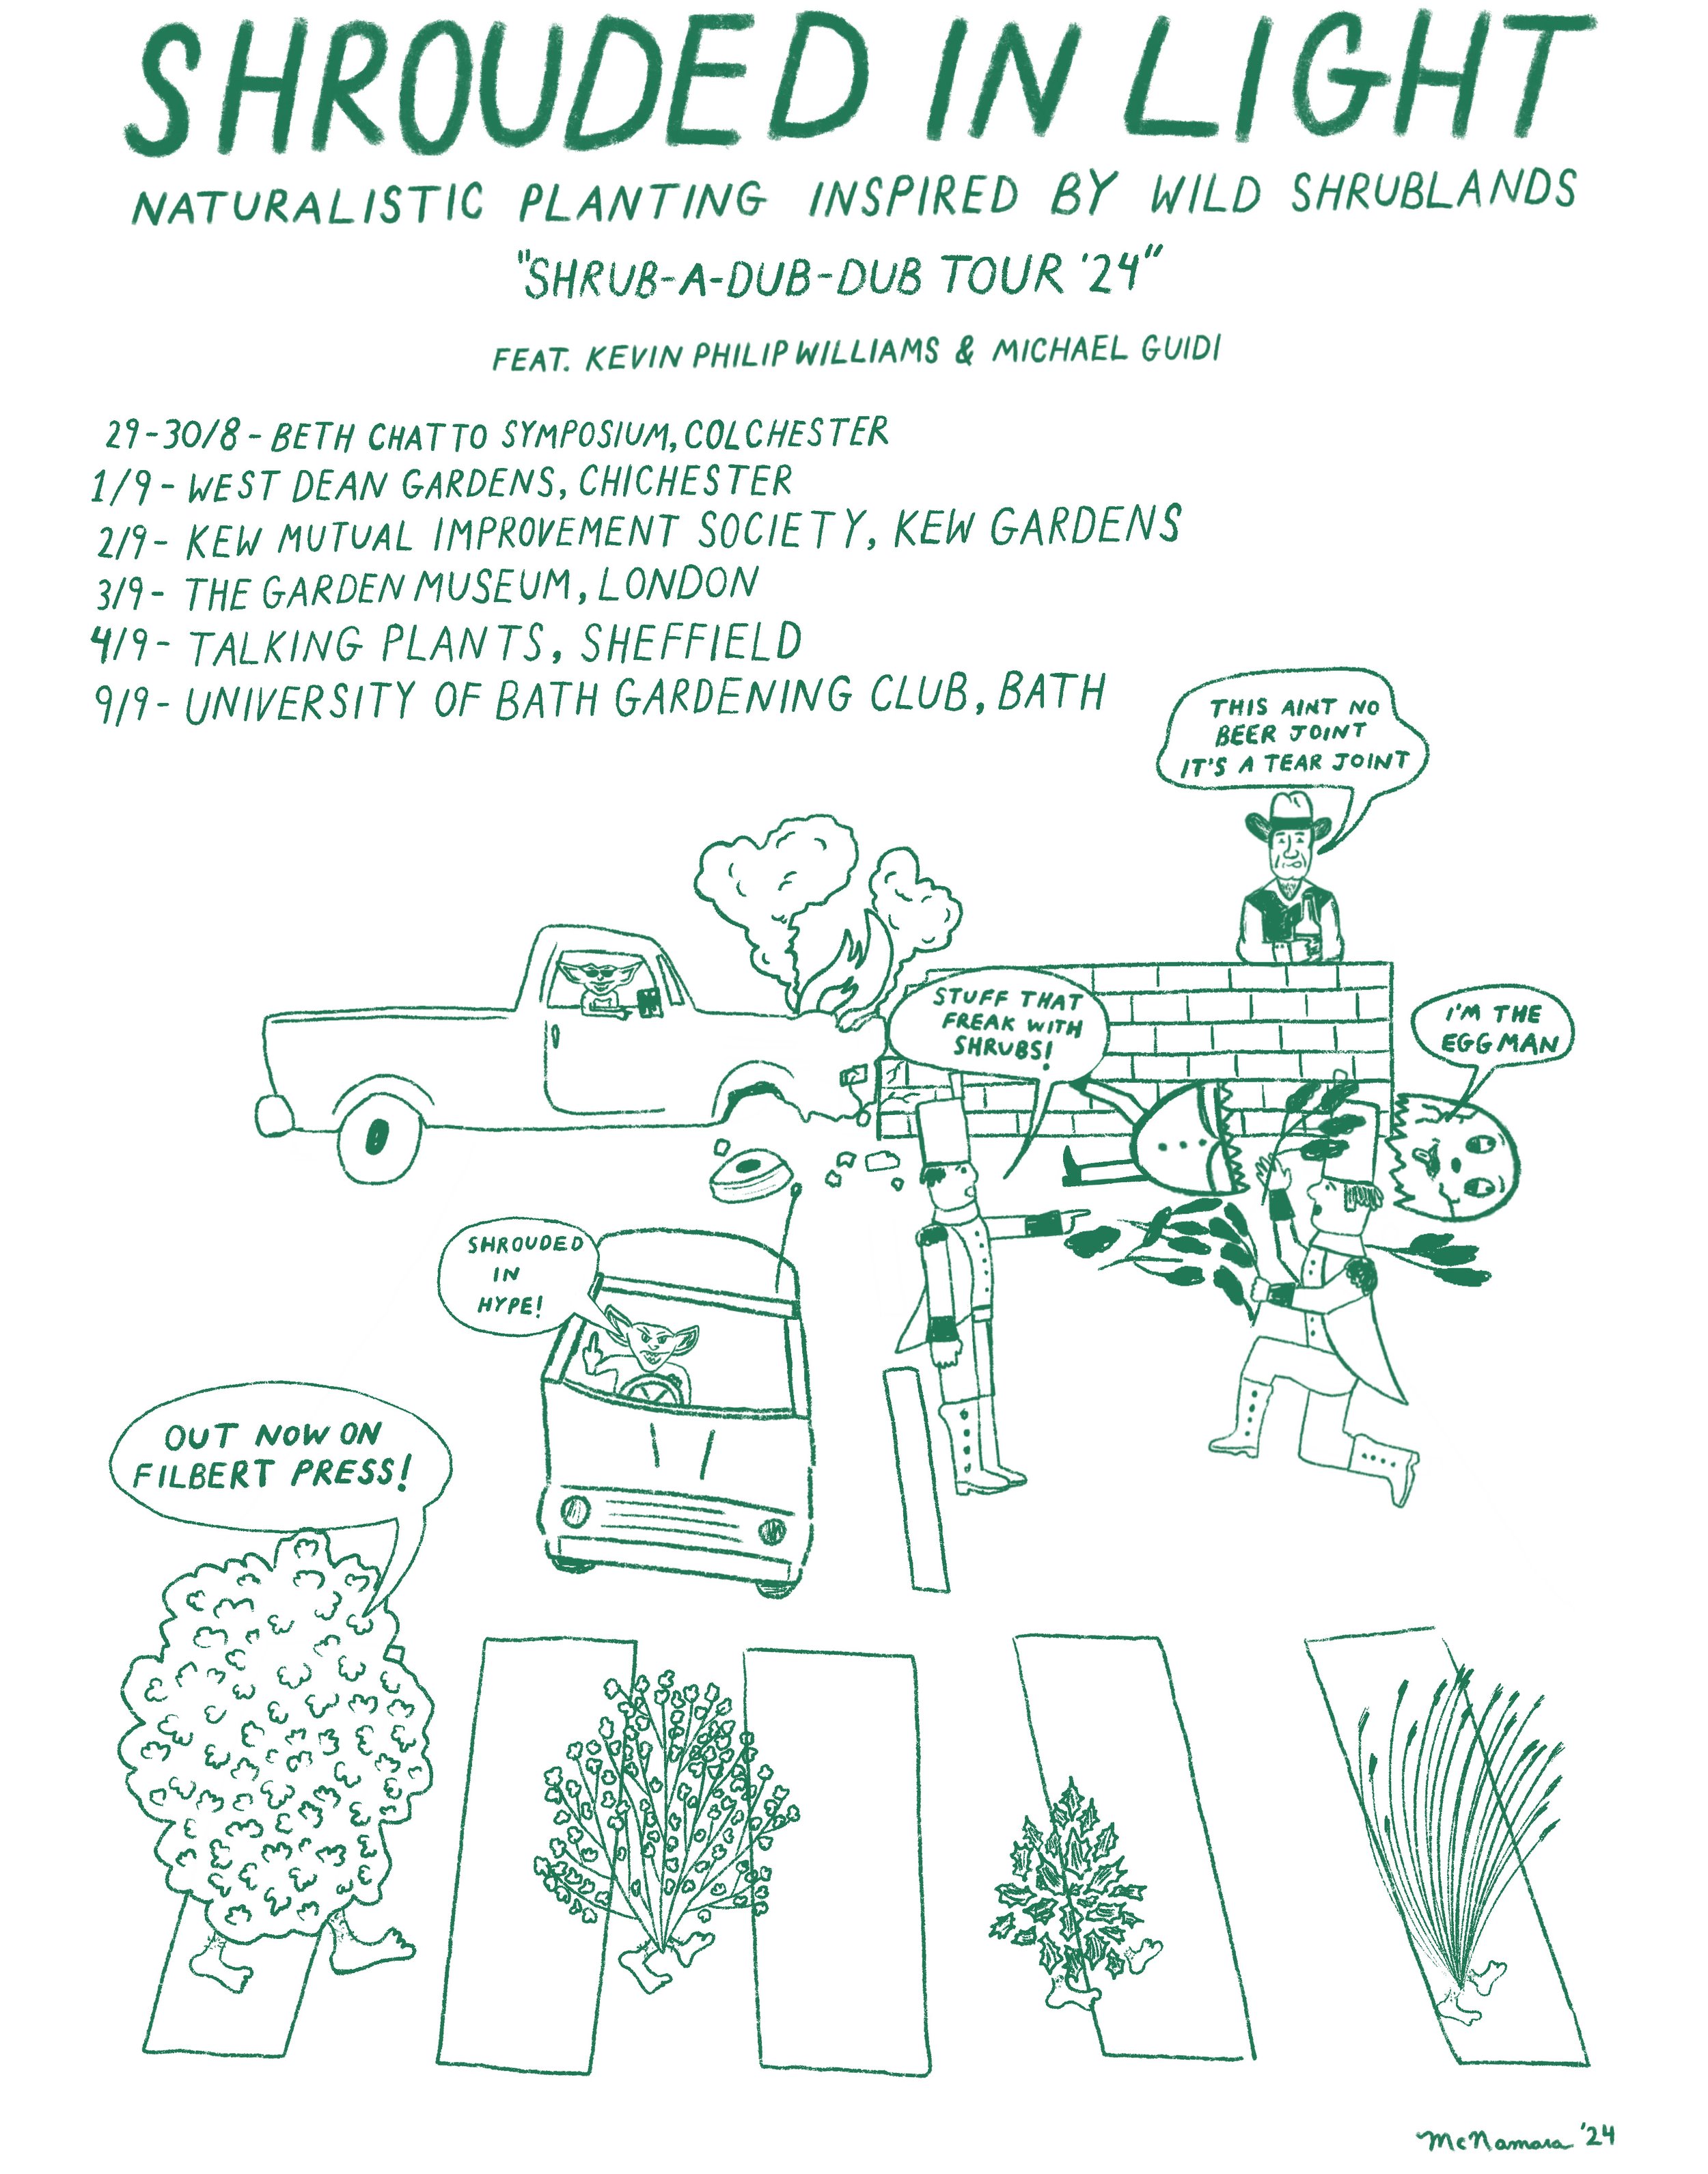 SHROUDED IN LIGHT
NATURALISTIC PLANTING INSPIRED BY WILD SHRUBLANDS
"SHRUB-A-DUB-DUB TOUR '24"
FEAT. KEVIN PHILIP WILLIAMS & MICHAEL GUIDI
29-30/8 - BETH CHATTO SYMPOSIUM, COLCHESTER
1/9 - WEST DEAN GARDENS, CHICHESTER
2/9 - KEW MUTUAL IMPROVEMENT SOCIETY, KEW GARDENS
3/9 - THE GARDEN MUSEUM, LONDON
4/9 - TALKING PLANTS, SHEFFIELD
9/9 - UNIVERSITY OF BATH GARDENING CLUB, BATH
THIS AINT NO
BEER JOINT
IT'S A TEAR JOINT
STUFF THAT
FREAK WITH
SHRUBS!
I'M THE
EGG MAN
SHROUDED
IN
HYPE!
OUT NOW ON
FILBERT PRESS!
McNamara '24